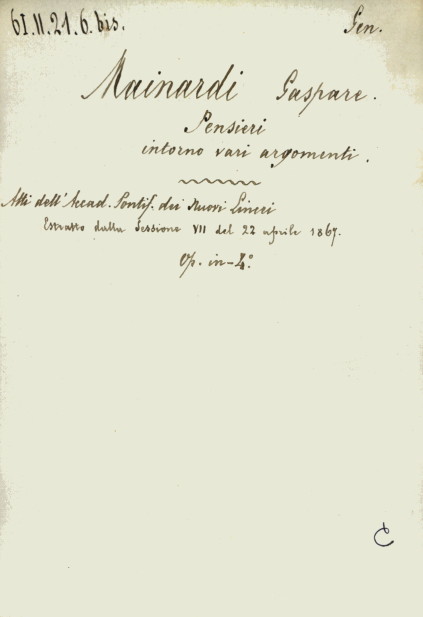 61.11.21.6.bis.
Gen.
Mainardi Gaspare.
Pensieri
intorno vari argomenti.
Atti dell'Accad. Pontif. dei Nuovi Lincei
Estratto dalla Sessione VII del 22 aprile 1867.
Op. in-4.º
C